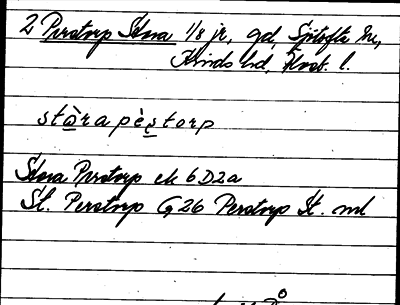 2 Perstorp Stora 1/8 jr, gd, Sjötofta sn,
Kinds hd, Älvsb. l.
stòra pèstorp
Stora Perstorp ek 6D2a
St. Perstorp G26 Perstorp St. ml